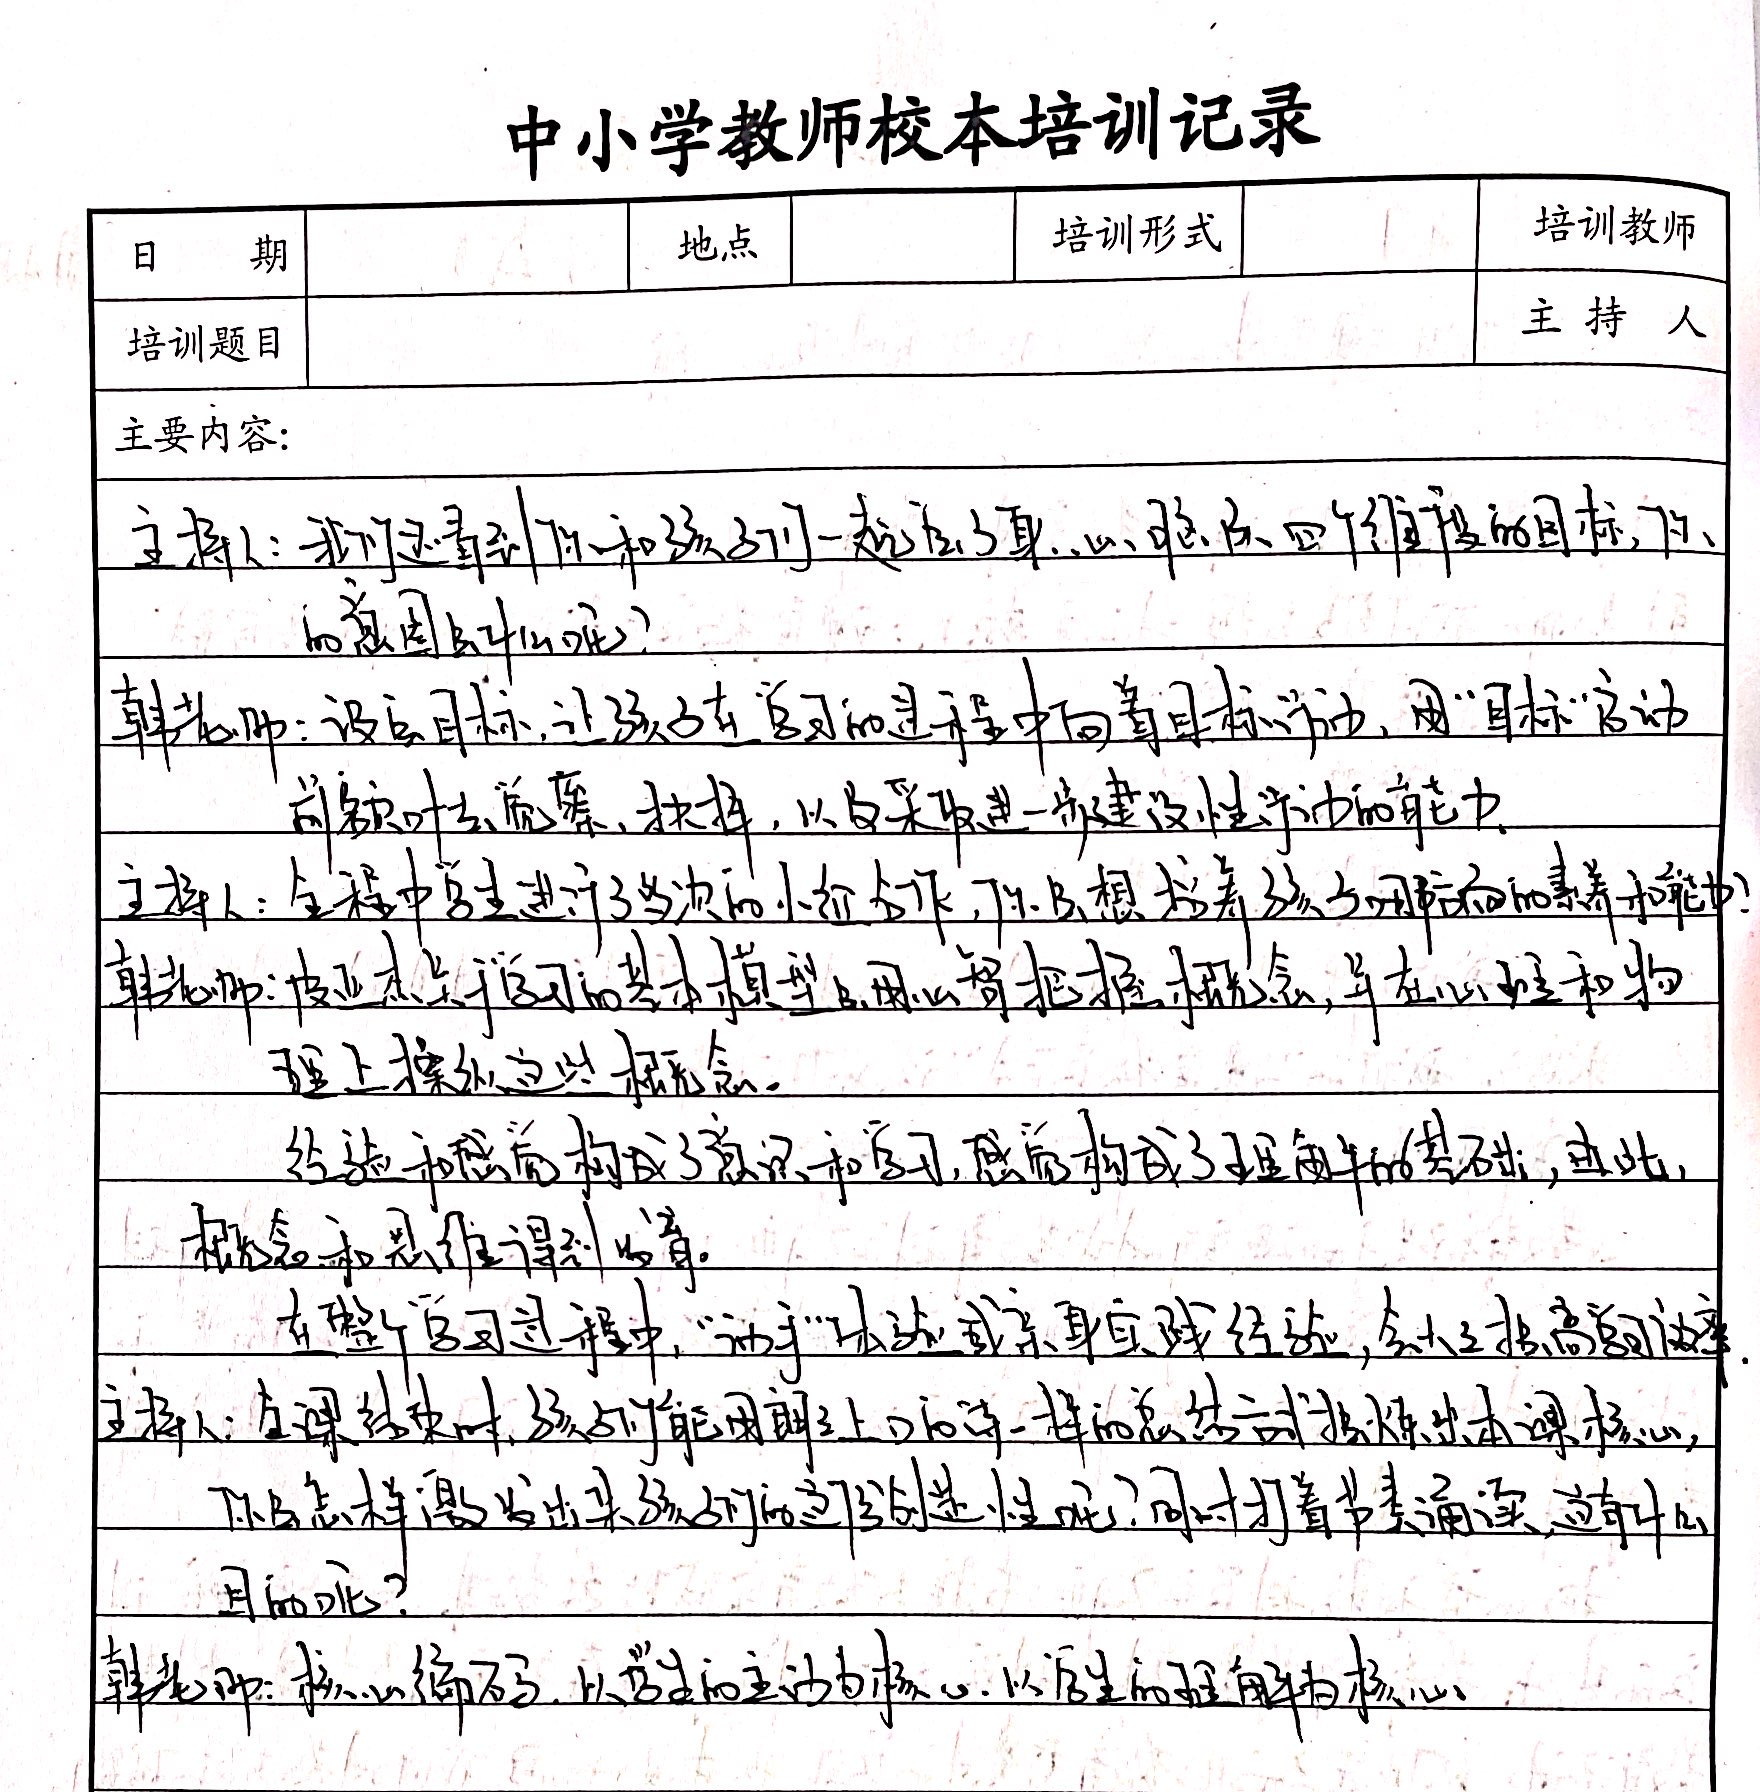 中小学教师校本培训记录
日 期 地点 培训形式 培训教师
培训题目 主 持 人
主要内容：
主持人：我们还看到你和孩子们一起定了身、心、理、际四个维度的目标，你
的意图是什么呢？
韩老师：设立目标，让孩子在学习的进程中向着目标行动，用“目标”启动
前额叶去觉察、抉择，以及采取进一步建设性行动的能力。
主持人：全程中学生进行了多次的小组合作，你是想培养孩子哪方面的素养和能力？
韩老师：皮亚杰关于学习的基本模型是用心智把握概念，并在心理和物
理上操纵这些概念。
经验和感觉构成了意识和学习，感觉构成了理解的基石出，由此，
概念和思维得到 。
在整个学习过程中，“动手”体验或亲身实践经验，会大大提高学习效率。
主持人：在课结束时，孩子们能用朗朗上口的诗一样的总结方式提炼出本课核心，
你是怎样激发出来孩子们的这份创造性呢？同时打着节奏诵读，这有什么
目的呢？
韩老师：核心编码，以学生的主动为核心，以学生的理解为核心